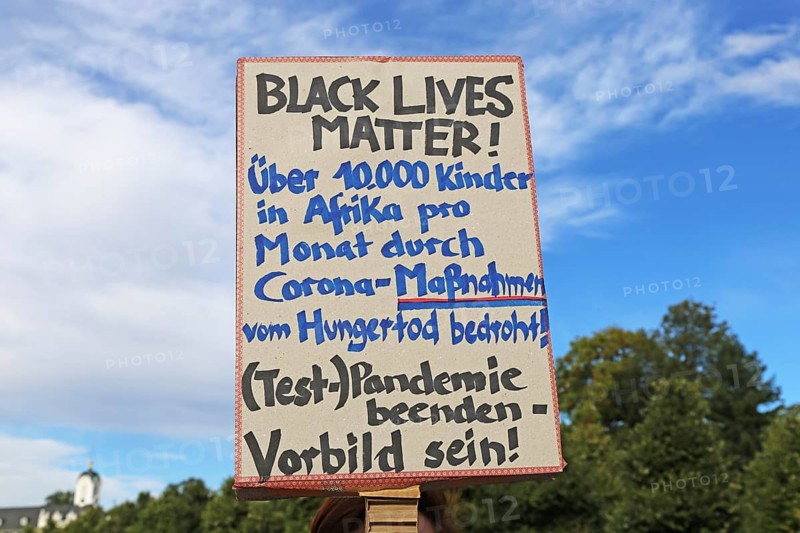 BLACK LIVES
MATTER!
Über 10.000 Kinder
in Afrika pro
Monat durch
Corona-Maßnahmen
vom Hungertod bedroht!
(Test-)Pandemie
beenden-
Vorbild sein!
PHOTO12